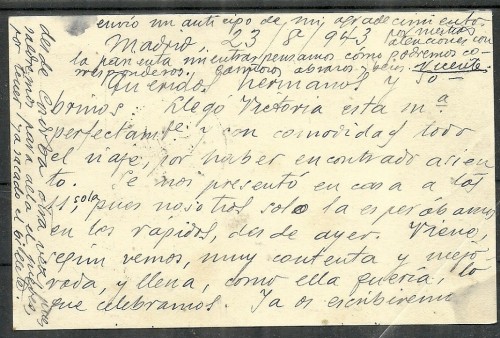 envío un anticipo de mi agradecimiento
por vuestras
Madrid, 23 8 / 943 atenciones con
la parienta mientras pensamos como podremos co-
rresponderos. cariñosos abrazos y besos. Vicente
Queridos hermanos y so-
brinos: Llegó Victoria esta mª
perfectamte y con comodidad todo
el viaje, por haber encontrado asien-
to. Se nos presentó en casa a las
sola, pues nosotros solo la esperábamos
en los rápidos, desde ayer. Viene,
según vemos, muy contenta y mejo-
rada, y llena, como ella quería, lo
que celebramos. Ya os escribiremos
desde Córdoba una vez
por tener ya sacado el billete.